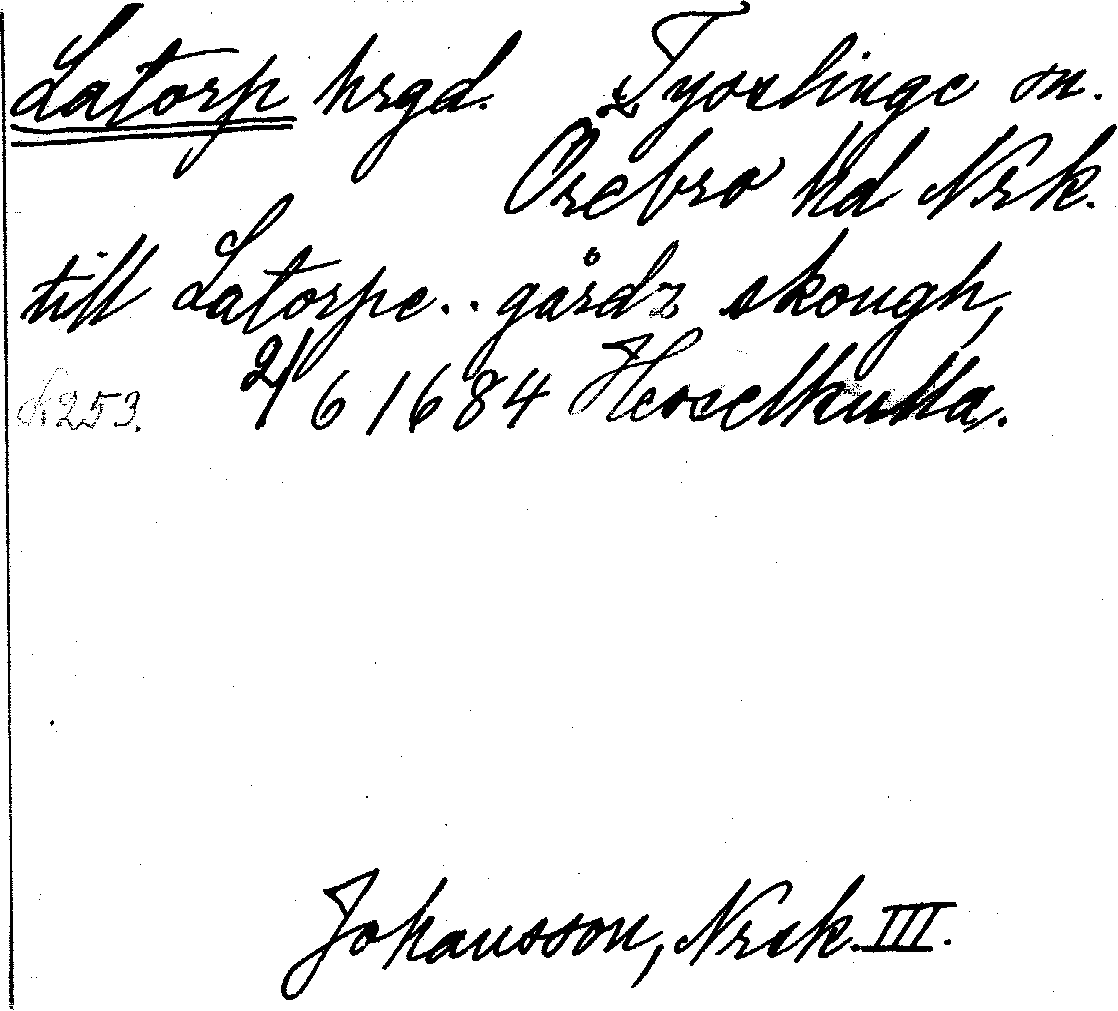 Latorp hrgd. Tysslinge sn.
Örebro hd Nrk.
till Latorpe.. gårdz skough,
N253. 2/6 1684
Johansson, Nrck. III.